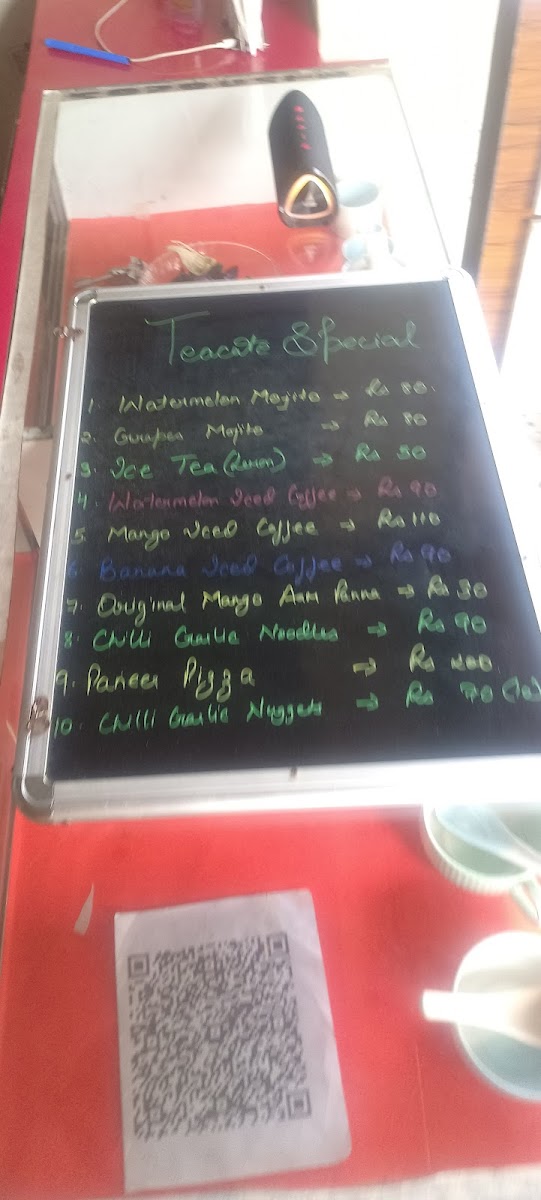 Teacote Special
1. Watermelon Mojito → Rs 80.
2. Grapes Mojito → Rs 80
3. Ice Tea (Lemon) → Rs 50
4. Watermelon Iced Coffee → Rs 90
5. Mango Iced Coffee → Rs 110
6. Banana Iced Coffee → Rs 90
7. Original Mango Aam Panna → Rs 30
8. Chilli Garlic Noodles → Rs 90
9. Paneer Pizza → Rs 200
10. Chilli Garlic Nuggets → Rs 70 (10)